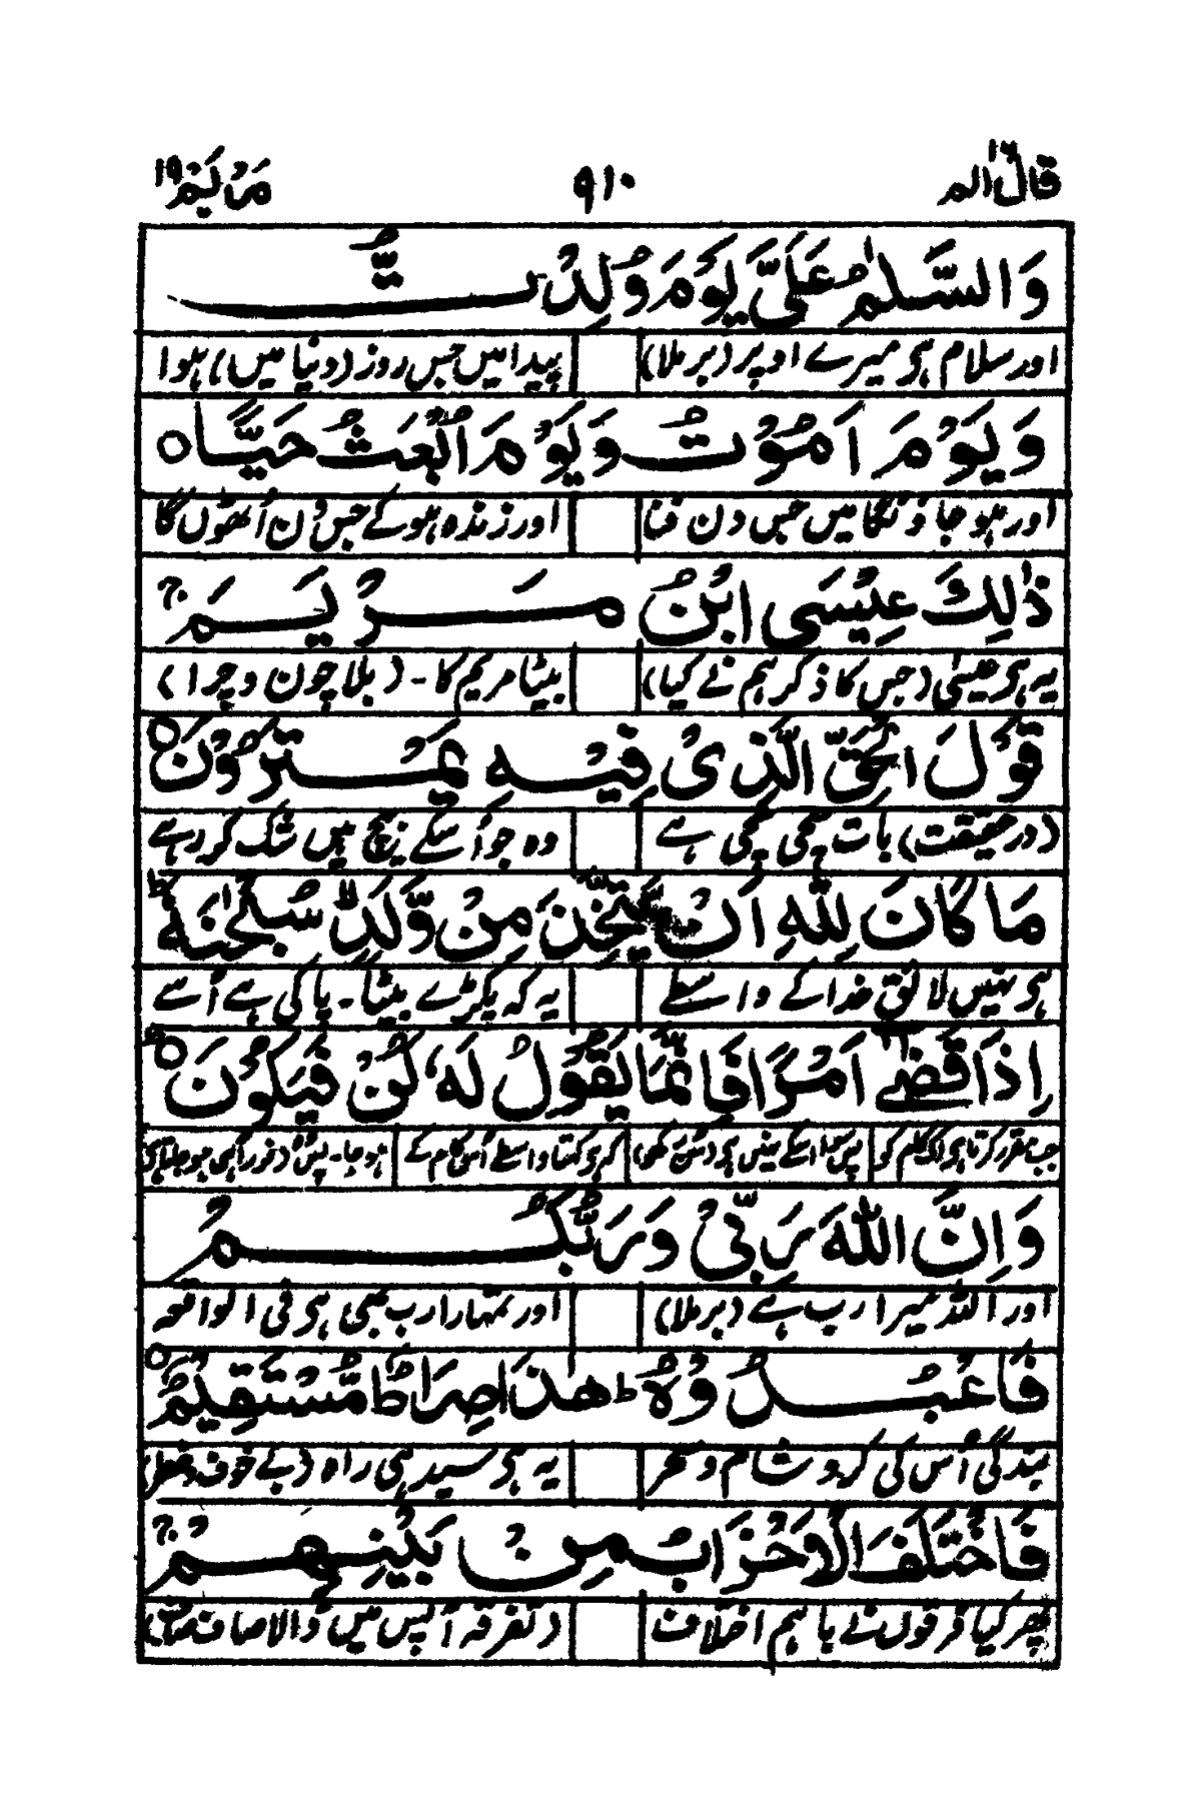 قال الم ١٦
٩١٠
مريم ١٩
وَالسَّلٰمُ عَلَىَّ يَوْمَ وُلِدْتُّ
اور سلام ہی میرے اوپر (برملا) پیدا میں جس روز (دنیا میں) ہوا
وَيَوْمَ اَمُوْتُ وَيَوْمَ اُبْعَثُ حَيًّا ○
اور ہو جاؤنگا میں جس دن فنا اور زندہ ہوکے جس دن اُٹھوں گا
ذٰلِكَ عِيْسَى ابْنُ مَرْيَمَ ۚ
یہ ہی عیسیٰ (جس کا ذکر ہم نے کیا) بیٹا مریم کا - (بلا چون وچرا)
قَوْلَ الْحَقِّ الَّذِىْ فِيْهِ يَمْتَرُوْنَ ○
(در حقیقت) بات سچی سچی ہے وہ جو اُسکے بیچ میں شک کر رہے
مَا كَانَ لِلّٰهِ اَنْ يَّتَّخِذَ مِنْ وَّلَدٍ سُبْحٰنَهٗ ؕ
ہی نہیں لائق خدا کے واسطے یہ کہ پکڑے بیٹا - پاکی ہے اُسے
اِذَا قَضٰى اَمْرًا فَاِنَّمَا يَقُوْلُ لَهٗ كُنْ فَيَكُوْنُ ○
جب مقرر کرتا ہی اک کام کو پس سوا اسکے نہیں ہی کہ ہی کہتا واسطے اُس کام کے ہو جا - پس (فوراً ہی) ہو جاتا ہی
وَاِنَّ اللّٰهَ رَبِّىْ وَرَبُّكُمْ
اور اللہ میرا رب ہے (برملا) اور تمہارا رب بھی ہی فی الواقعہ
فَاعْبُدُوْهُ ؕ هٰذَا صِرَاطٌ مُّسْتَقِيْمٌ ○
بندگی اُس کی کرو شام و سحر یہ ہی سیدہی راہ (بے خوف وخطر)
فَاخْتَلَفَ الْاَحْزَابُ مِنْ بَيْنِهِمْ ۚ
پھر کیا فرقوں نے باہم اختلاف (تفرقہ آپس میں ڈالا صاف صاف)